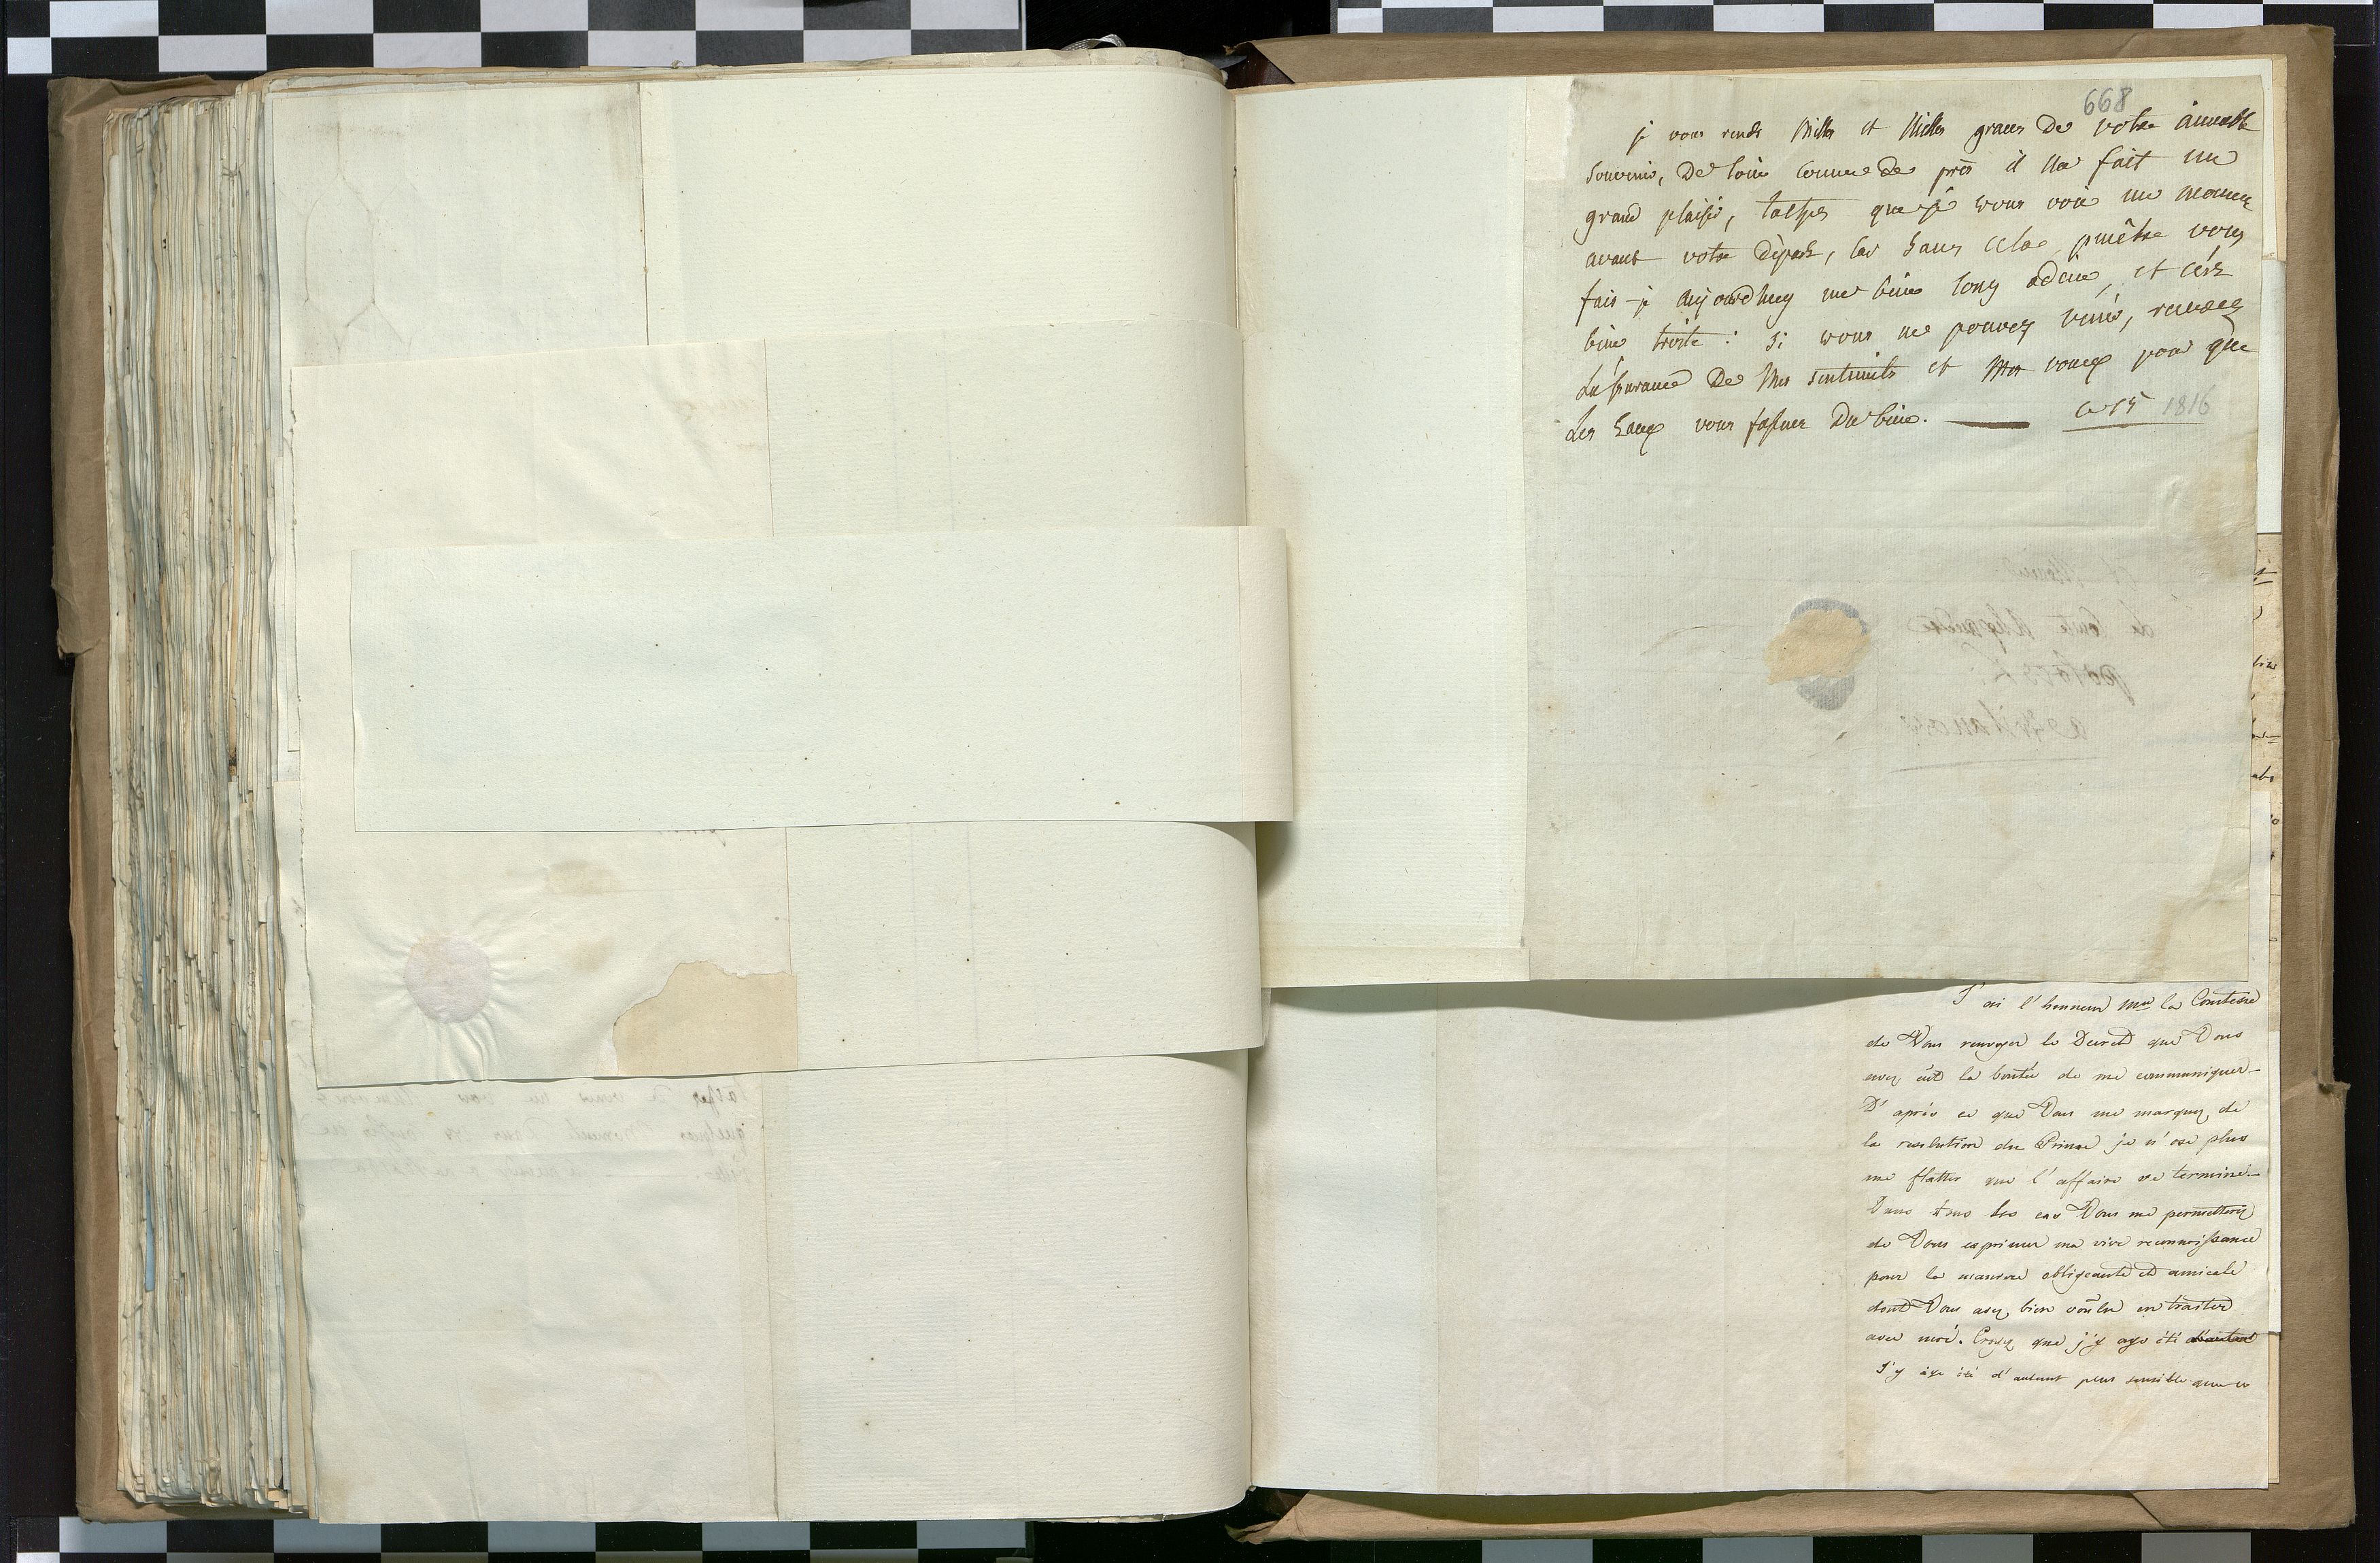 668
je vous rends Milles et Milles graces De votre aimable
Souvenir, De loin comme De près il Ma fait un
grand plaisir, tachés que je vous voie un momen
avant votre Départ, Car Sans cela peuêtre vous
fais-je Aujourdhuy un bien long adieu, et cést
bien triste : Si vous ne pouvez venir, recevez
L'assurance De Mes sentiments et Mes voeux pour que
Les Eaux vous fassent Du bien. — Ce 15 1816
J'ai l'honneur Mme la Comtesse
de Vous renvoyer le Decret que Vous
avez eût la bontée de me communiquer—
D'après ce que Vous me marquez, de
la resolution du Prince je n'ose plus
me flatter que l'affaire se termine.—
Dans tous les cas Vous me permettrez
de Vous exprimer ma vive reconnoissance
pour la maniere obligeante et amicale
dont Vous avez bien voûlu en traiter
avec moi. Croyez que j'y aye été d'autant
J'y aye été d'autant plus sensible que ce